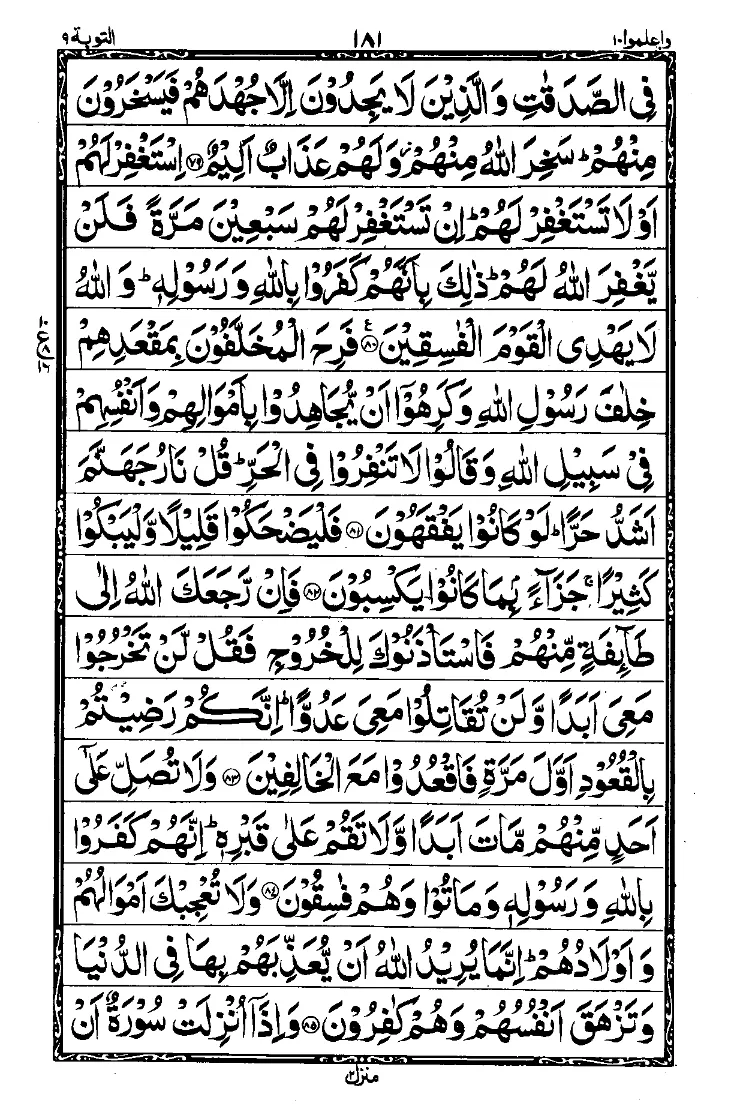 واعلموا ١٠
١٨١
التوبة ٩
فِى الصَّدَقٰتِ وَالَّذِيْنَ لَا يَجِدُوْنَ اِلَّا جُهْدَهُمْ فَيَسْخَرُوْنَ
مِنْهُمْ ؕ سَخِرَ اللّٰهُ مِنْهُمْ ؗ وَلَهُمْ عَذَابٌ اَلِيْمٌ ۝٧٩ اِسْتَغْفِرْ لَهُمْ
اَوْ لَا تَسْتَغْفِرْ لَهُمْ ؕ اِنْ تَسْتَغْفِرْ لَهُمْ سَبْعِيْنَ مَرَّةً فَلَنْ
يَّغْفِرَ اللّٰهُ لَهُمْ ؕ ذٰلِكَ بِاَنَّهُمْ كَفَرُوْا بِاللّٰهِ وَرَسُوْلِهٖ ؕ وَاللّٰهُ
لَا يَهْدِى الْقَوْمَ الْفٰسِقِيْنَ ۝٨٠ فَرِحَ الْمُخَلَّفُوْنَ بِمَقْعَدِهِمْ
خِلٰفَ رَسُوْلِ اللّٰهِ وَكَرِهُوْۤا اَنْ يُّجَاهِدُوْا بِاَمْوَالِهِمْ وَاَنْفُسِهِمْ
فِىْ سَبِيْلِ اللّٰهِ وَقَالُوْا لَا تَنْفِرُوْا فِى الْحَرِّ ؕ قُلْ نَارُ جَهَنَّمَ
اَشَدُّ حَرًّا ؕ لَوْ كَانُوْا يَفْقَهُوْنَ ۝٨١ فَلْيَضْحَكُوْا قَلِيْلًا وَّلْيَبْكُوْا
كَثِيْرًا ۚ جَزَآءً ۢ بِمَا كَانُوْا يَكْسِبُوْنَ ۝٨٢ فَاِنْ رَّجَعَكَ اللّٰهُ اِلٰى
طَآئِفَةٍ مِّنْهُمْ فَاسْتَاْذَنُوْكَ لِلْخُرُوْجِ فَقُلْ لَّنْ تَخْرُجُوْا
مَعِىَ اَبَدًا وَّلَنْ تُقَاتِلُوْا مَعِىَ عَدُوًّا ؕ اِنَّكُمْ رَضِيْتُمْ
بِالْقُعُوْدِ اَوَّلَ مَرَّةٍ فَاقْعُدُوْا مَعَ الْخَالِفِيْنَ ۝٨٣ وَلَا تُصَلِّ عَلٰٓى
اَحَدٍ مِّنْهُمْ مَّاتَ اَبَدًا وَّلَا تَقُمْ عَلٰى قَبْرِهٖ ؕ اِنَّهُمْ كَفَرُوْا
بِاللّٰهِ وَرَسُوْلِهٖ وَمَاتُوْا وَهُمْ فٰسِقُوْنَ ۝٨٤ وَلَا تُعْجِبْكَ اَمْوَالُهُمْ
وَاَوْلَادُهُمْ ؕ اِنَّمَا يُرِيْدُ اللّٰهُ اَنْ يُّعَذِّبَهُمْ بِهَا فِى الدُّنْيَا
وَتَزْهَقَ اَنْفُسُهُمْ وَهُمْ كٰفِرُوْنَ ۝٨٥ وَاِذَاۤ اُنْزِلَتْ سُوْرَةٌ اَنْ
منزل ٢